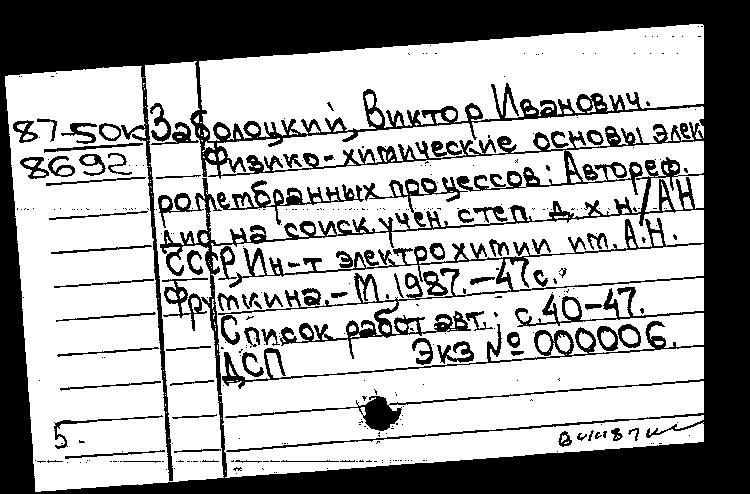 87-50к Заболоцкий, Виктор Иванович.
8692 Физико-химические основы элек
ромембранных процессов: Автореф.
дис. на соиск. учен. степ. д. х. н. / АН
СССР, Ин-т электрохимии им. А. Н.
Фрумкина. - М., 1987. - 47 с.
Список работ авт.: с. 40-47.
ДСП Экз № 000006.
5.